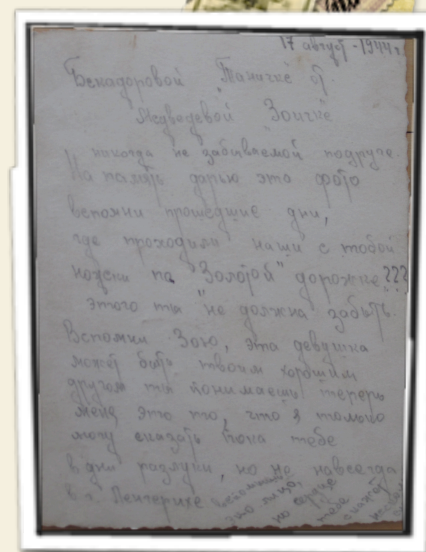 17 август - 1944 г.
Бенадоровой Таничке от
Медведевой Зоичке
никогда не забываемой подруге.
На память дарью это фото
вспомни прошедшие дни,
где проходили наши с тобой
ножки па "Золотой" дорожке???
этого ты не должна забыть.
Вспомни Зою, эта девушка
может быть твоим хорошим
другом ты понимаешь теперь
меня, это то, что я только
могу сказать пока тебе
в дни разлуки, но не навсегда
в г. Пенчерихе
это лицо,
но сердце
тебе
скажет